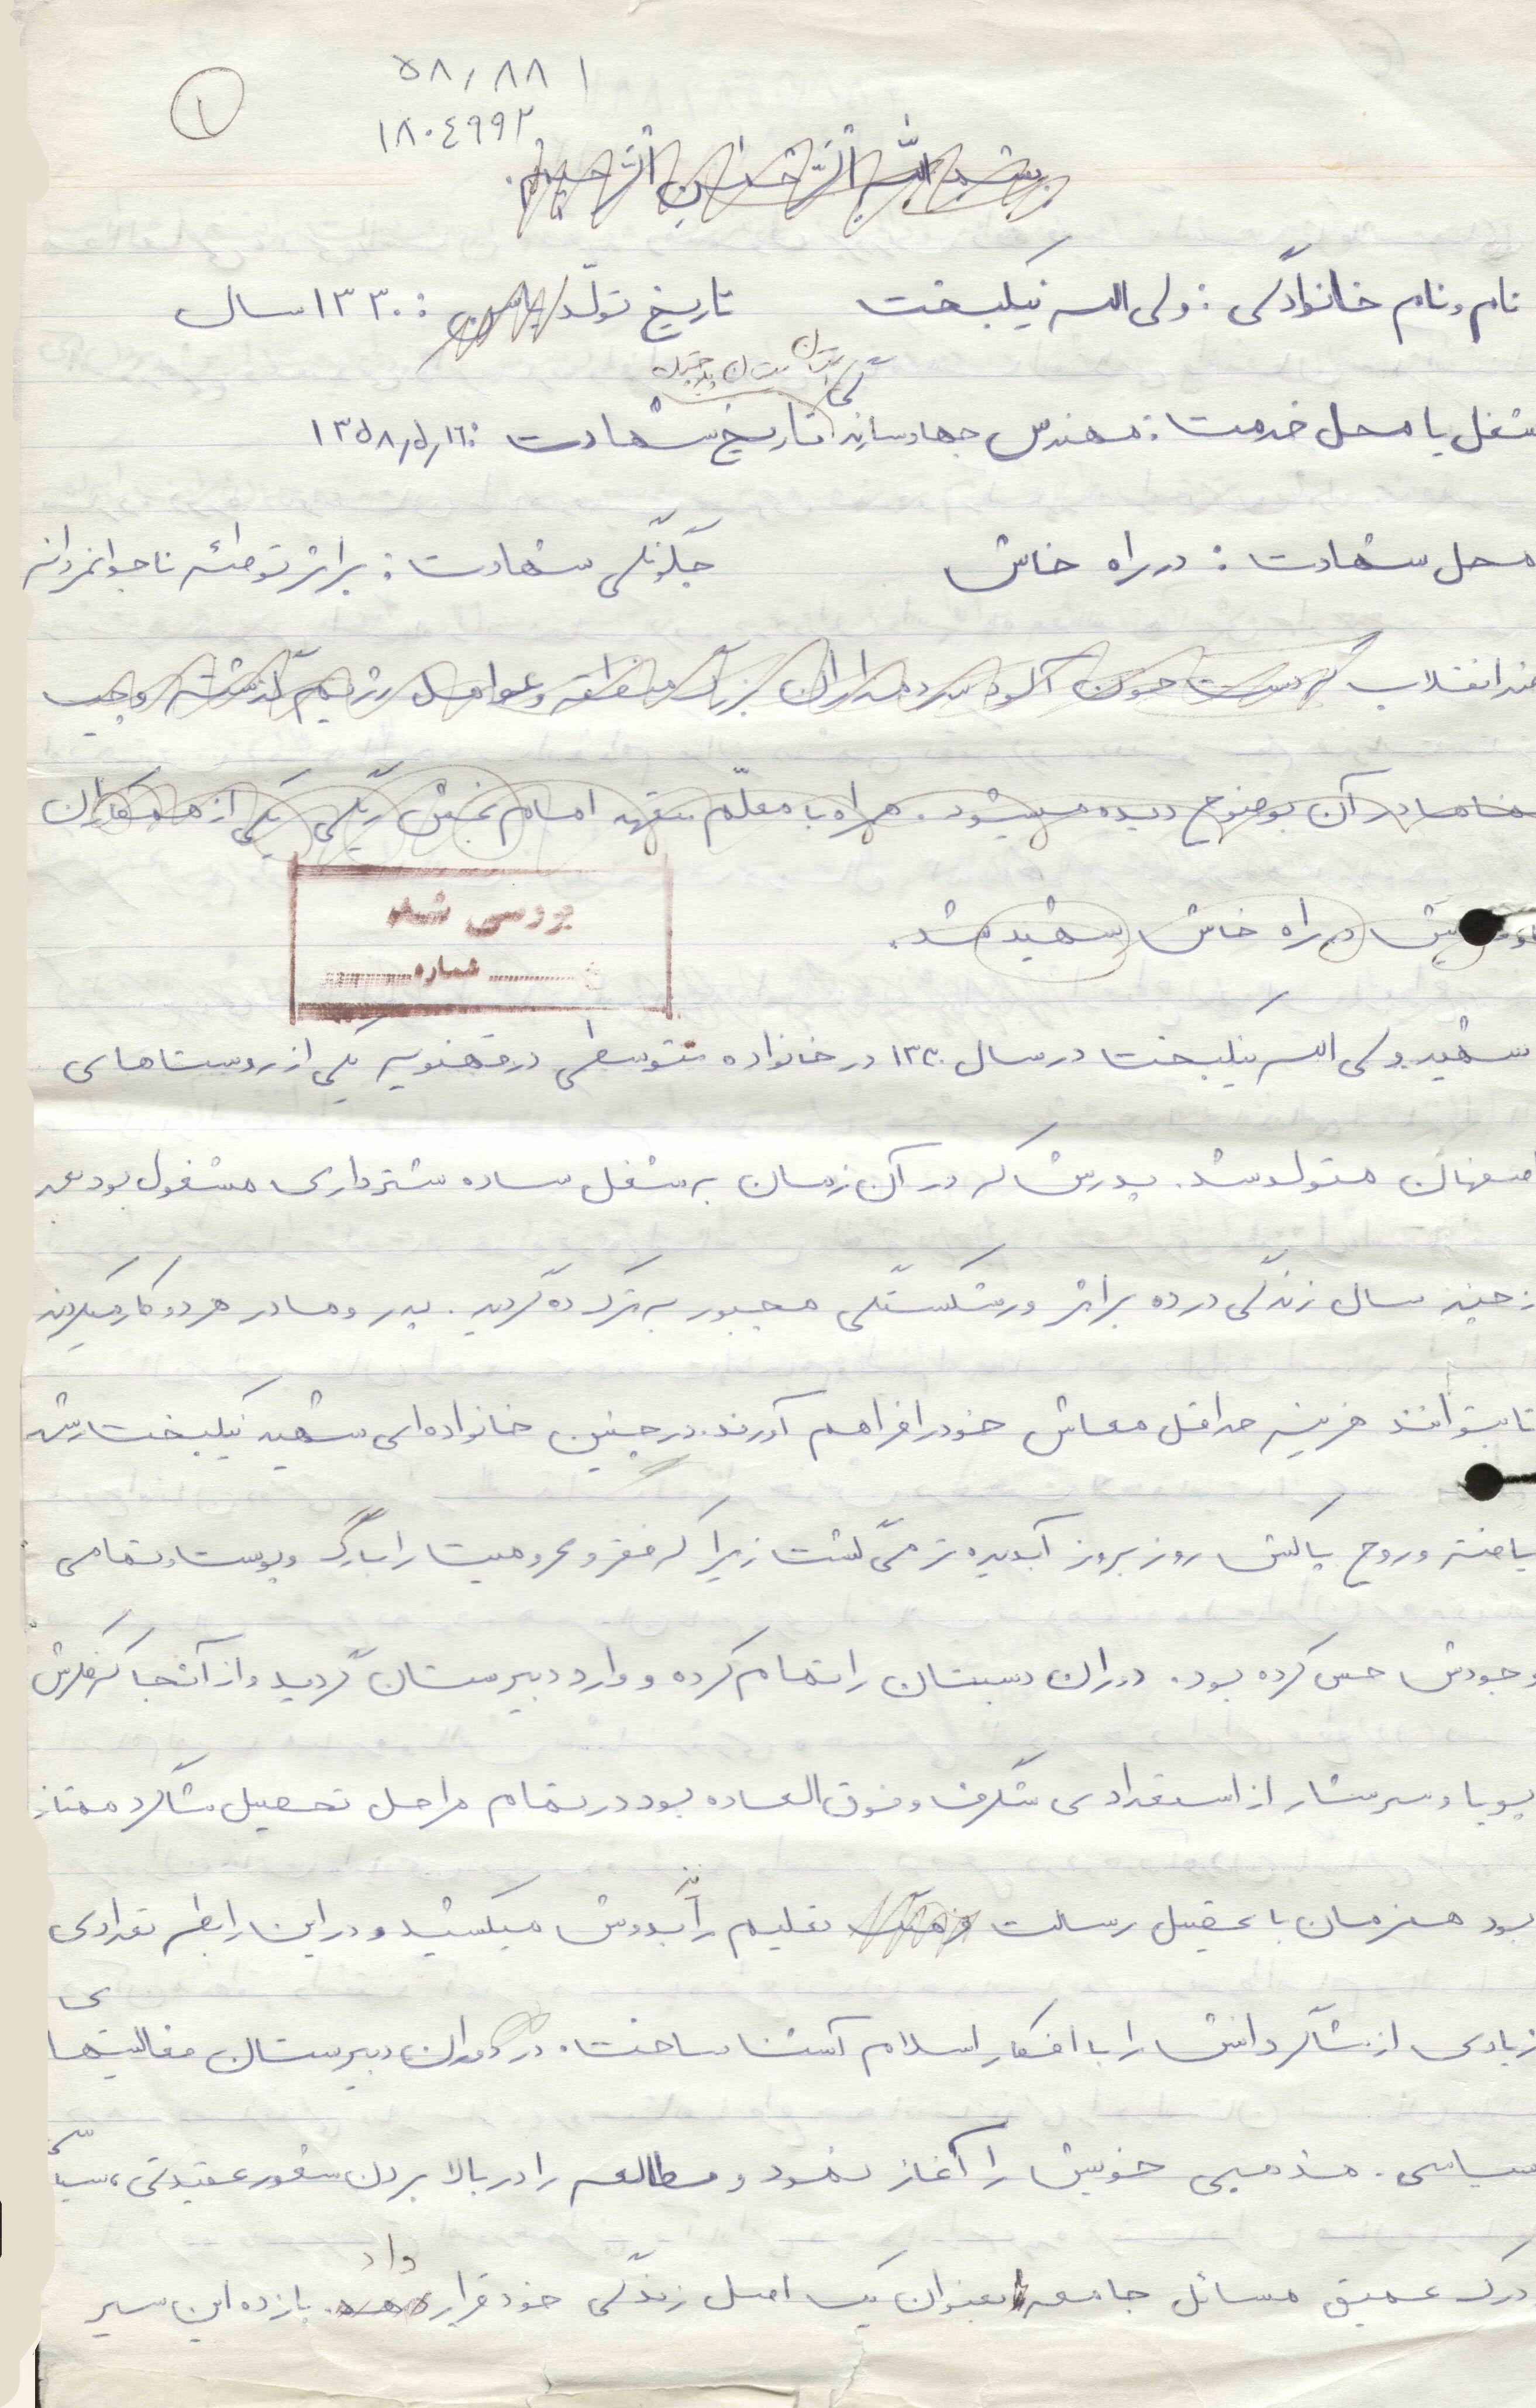 ۵۸/۸۸۱
۱
۱۸۰٤۹۹۲
بسم الله الرّحمن الرّحیم.
نام و نام خانوادگی: ولی اله نیکبخت تاریخ تولّد : ۱۳۳۰ سال
شغل یا محل خدمت: مهندس جهاد سازندگی تاریخ شهادت: ۱۳۵۸/۵/۱٦
محل شهادت: در راه خاش چگونگی شهادت: بر اثر توطئه ناجوانمردانه
ضد انقلاب که دست خون آلود سردمداران بزرگ منطقه و عوامل رژیم گذشته و چپ
نماها در آن بوضوح دیده میشود. همراه با معلّم متعهد امام بخش ریگی یکی از همکاران
در راه خاش شهید شد.
بررسی شد
شماره
شهید ولی اله نیکبخت در سال ۱۳۳۰ در خانواده متوسطی در قهنویه یکی از روستاهای
اصفهان متولد شد. پدرش که در آن زمان به شغل ساده شترداری مشغول بود بعد
از چند سال زندگی در ده بر اثر ورشکستگی مجبور به ترک ده گردید. پدر و مادر هر دو کار میکردند
تا بتوانند هزینه حداقل معاش خود را فراهم آورند. در چنین خانواده‌ای شهید نیکبخت رشد
یافته و روح پاکش روز بروز آبدیده تر می گشت زیرا که فقر و محرومیت را با رگ و پوست و تمامی
وجودش حس کرده بود. دوران دبستان را تمام کرده و وارد دبیرستان گردید و از آنجا که فکرش
پویا و سرشار از استعدادی شگرف و فوق العاده بود در تمام مراحل تحصیل شاگرد ممتاز
بود همزمان با تحصیل رسالت تعلیم را بدوش میکشید و در این رابطه تعدادی
زیادی از شاگردانش را با افکار اسلام آشنا ساخت. در دوران دبیرستان فعالیتهای
سیاسی. مذهبی خویش را آغاز نمود و مطالعه را در بالا بردن شعور عقیدتی، سیاسی
درک عمیق مسائل جامعه بعنوان یک اصل زندگی خود قرار داد بازده این سیر